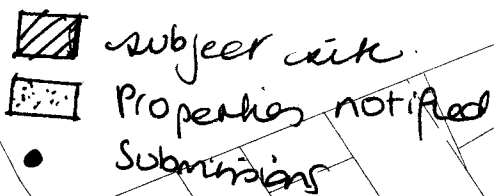 subject site.
Properties notified
Submissions